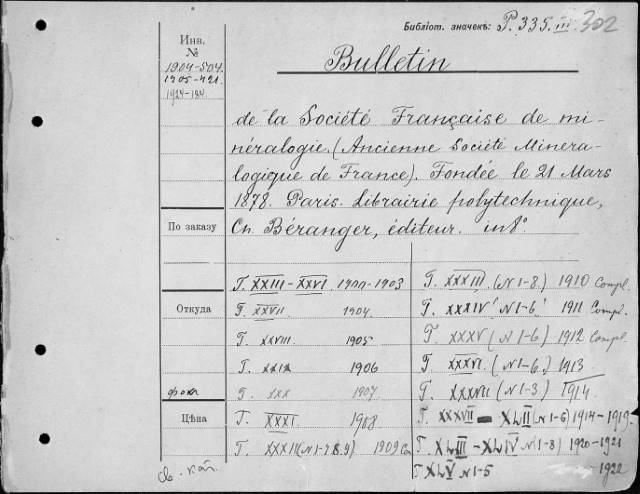 Библіот. значекъ: P. 335. III. 302
Инв.
№
1904-504.
1905-421.
1924-184.
Bulletin
de la Société Française de mi-
néralogie. (Ancienne Société Minera-
logique de France). Fondée le 21 Mars
1878. Paris. Librairie polytechnique,
Ch. Béranger, éditeur. in 8°.
По заказу
Откуда
Цѣна
T. XXIII-XXVI 1900-1903
T. XXVII 1904
T. XXVIII 1905
T. XXIX 1906
T. XXX 1907
T. XXXI 1908
T. XXXII (N 1-7.8.9) 1909
T. XXXIII (N 1-8.) 1910 Compl.
T. XXXIV (N 1-6) 1911 Compl.
T. XXXV (N 1-6) 1912 Compl.
T. XXXVI. (N 1-6.) 1913
T. XXXVII (N 1-3) 1914
T. XXXVII - XLII (N 1-6) 1914-1919
T. XLIII - XLIV (N 1-8) 1920-1921
T XLV N 1-5 1922